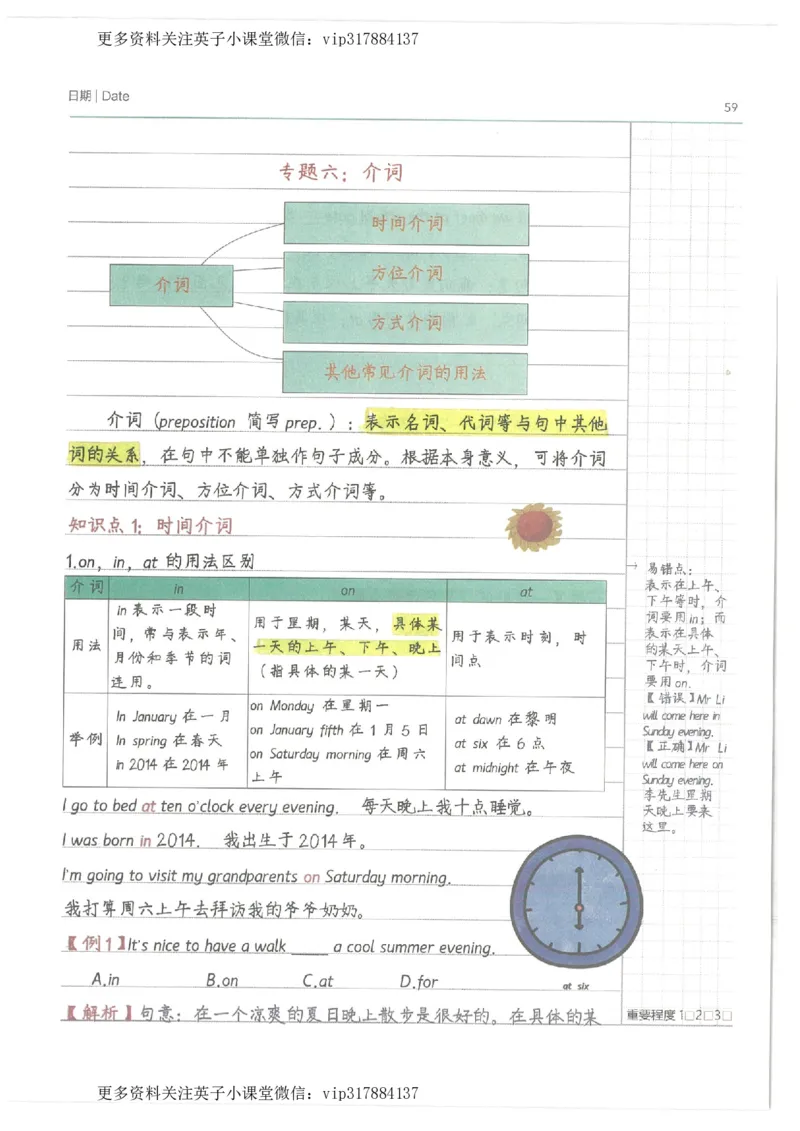 更多资料关注英子小课堂微信：vip317884137
日期 | Date
59
专题六：介词
介词
时间介词
方位介词
方式介词
其他常见介词的用法
介词（preposition 简写 prep.）：表示名词、代词等与句中其他
词的关系，在句中不能单独作句子成分。根据本身意义，可将介词
分为时间介词、方位介词、方式介词等。
知识点 1：时间介词
1.on，in，at 的用法区别
介词 in on at
用法
in 表示一段时
间，常与表示年、
月份和季节的词
连用。
用于星期，某天，具体某
一天的上午、下午、晚上
（指具体的某一天）
用于表示时刻，时
间点
举例
In January 在一月
In spring 在春天
in 2014 在 2014 年
on Monday 在星期一
on January fifth 在 1 月 5 日
on Saturday morning 在周六
上午
at dawn 在黎明
at six 在 6 点
at midnight 在午夜
→ 易错点：
表示在上午、
下午等时，介
词要用 in；而
表示在具体
的某天上午、
下午时，介词
要用 on.
【错误】Mr Li
will come here in
Sunday evening.
【正确】Mr Li
will come here on
Sunday evening.
李先生星期
天晚上要来
这里。
I go to bed at ten o'clock every evening. 每天晚上我十点睡觉。
I was born in 2014. 我出生于 2014 年。
I'm going to visit my grandparents on Saturday morning.
我打算周六上午去拜访我的爷爷奶奶。
【例 1】It's nice to have a walk ____ a cool summer evening.
A.in B.on C.at D.for
at six
【解析】句意：在一个凉爽的夏日晚上散步是很好的。在具体的某
重要程度 1□2□3□
更多资料关注英子小课堂微信：vip317884137